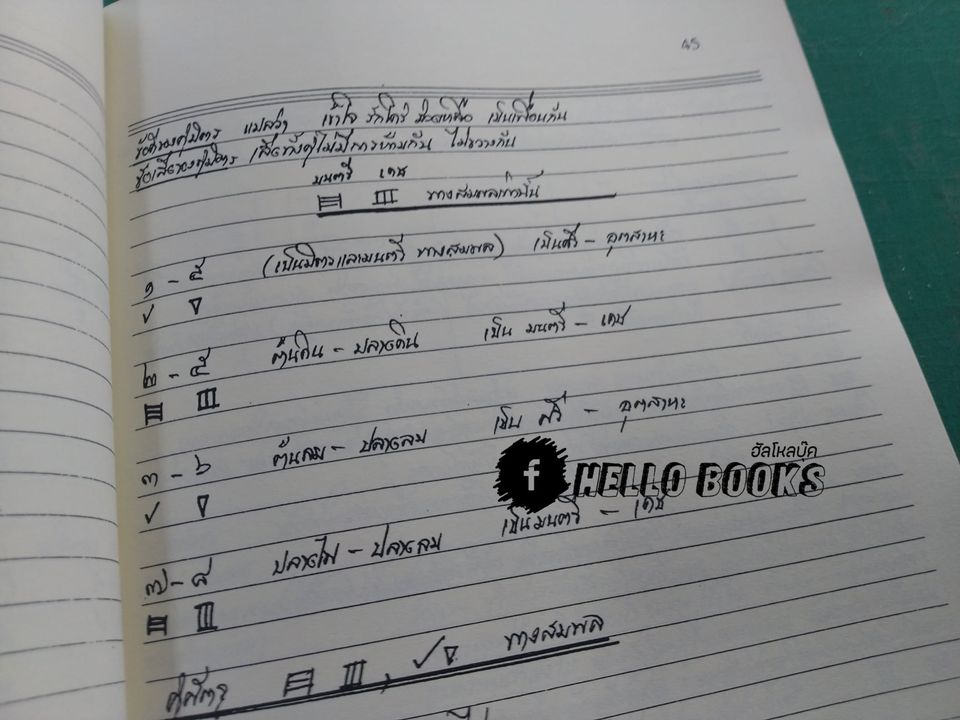 45
ข้อดีของคู่มิตร แปลว่า เข้าใจ รักใคร่ ช่วยเหลือ เป็นเพื่อนกัน
ข้อเสียของคู่มิตร เสียทั้งคู่ไม่มีการห้ามกัน ไม่ขวางกัน
มนตรี เดช
ทางสมพลเท่านั้น
๑ - ๕ (เป็นมิตรและมนตรี ทางสมพล) เป็นศรี - อุตสาหะ
๒ - ๕ ต้นดิน - ปลายดิน เป็น มนตรี - เดช
๓ - ๖ ต้นลม - ปลายลม เป็น ศรี - อุตสาหะ
ฮัลโหลบุ๊ค
f HELLO BOOKS
๗ - ๘ ปลายไฟ - ปลายลม เป็น มนตรี - เดช
คู่ศัตรู ทางสมพล